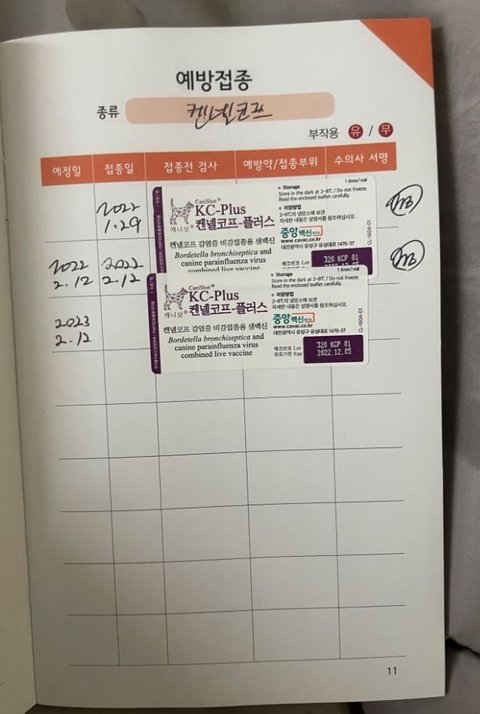 예방접종
종류 켄넬코프
부작용 유 / 무
예정일 접종일 접종전 검사 예방약/접종부위 수의사 서명
2022
1.29
CaniShot®
캐니샷®
KC-Plus
켄넬코프-플러스
켄넬코프 감염증 비강접종용 생백신
Bordetella bronchiseptica and
canine parainfluenza virus
combined live vaccine
1 dose/vial
Storage
Store in the dark at 2~8℃ / Do not freeze.
Read the enclosed leaflet carefully.
저장방법
2~8℃의 냉암소에 보관
자세한 내용은 설명서를 참조하십시오.
중앙백신
www.cavac.co.kr
대전광역시 유성구 유성대로 1476-37
제조번호 Lot
320 KCP 01
CL-160A-01
2022 2022
2.12 2.12
CaniShot®
캐니샷®
KC-Plus
켄넬코프-플러스
켄넬코프 감염증 비강접종용 생백신
Bordetella bronchiseptica and
canine parainfluenza virus
combined live vaccine
1 dose/vial
Storage
Store in the dark at 2~8℃ / Do not freeze.
Read the enclosed leaflet carefully.
저장방법
2~8℃의 냉암소에 보관
자세한 내용은 설명서를 참조하십시오.
중앙백신
www.cavac.co.kr
대전광역시 유성구 유성대로 1476-37
제조번호 Lot 320 KCP 01
유효기한 Exp 2022.12.05
CL-160A-01
2023
2.12
11